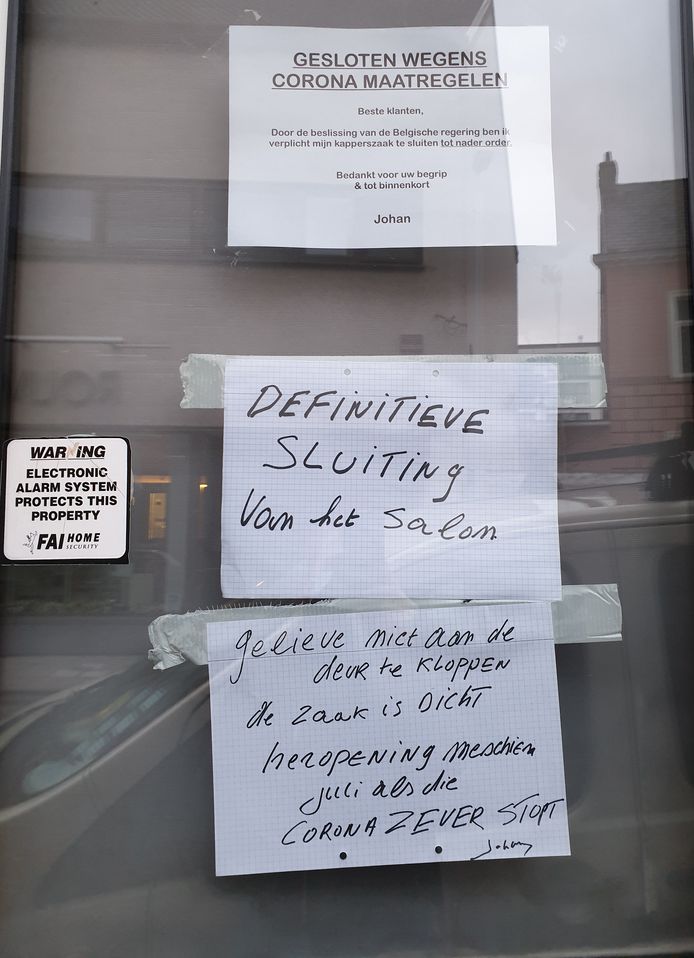 GESLOTEN WEGENS
CORONA MAATREGELEN
Beste klanten,
Door de beslissing van de Belgische regering ben ik
verplicht mijn kapperszaak te sluiten tot nader order.
Bedankt voor uw begrip
& tot binnenkort
Johan
DEFINITIEVE
SLUITING
Van het salon
WARNING
ELECTRONIC
ALARM SYSTEM
PROTECTS THIS
PROPERTY
FAI HOME
SECURITY
gelieve niet aan de
deur te KLOPPEN
de zaak is DICHT
heropening meschien
juli als die
CORONA ZEVER STOPT
Johan